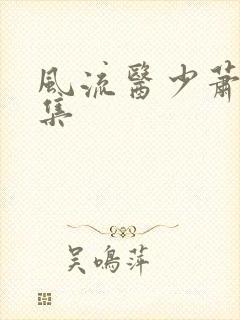 風流醫少蕭
集
吴鳴萍